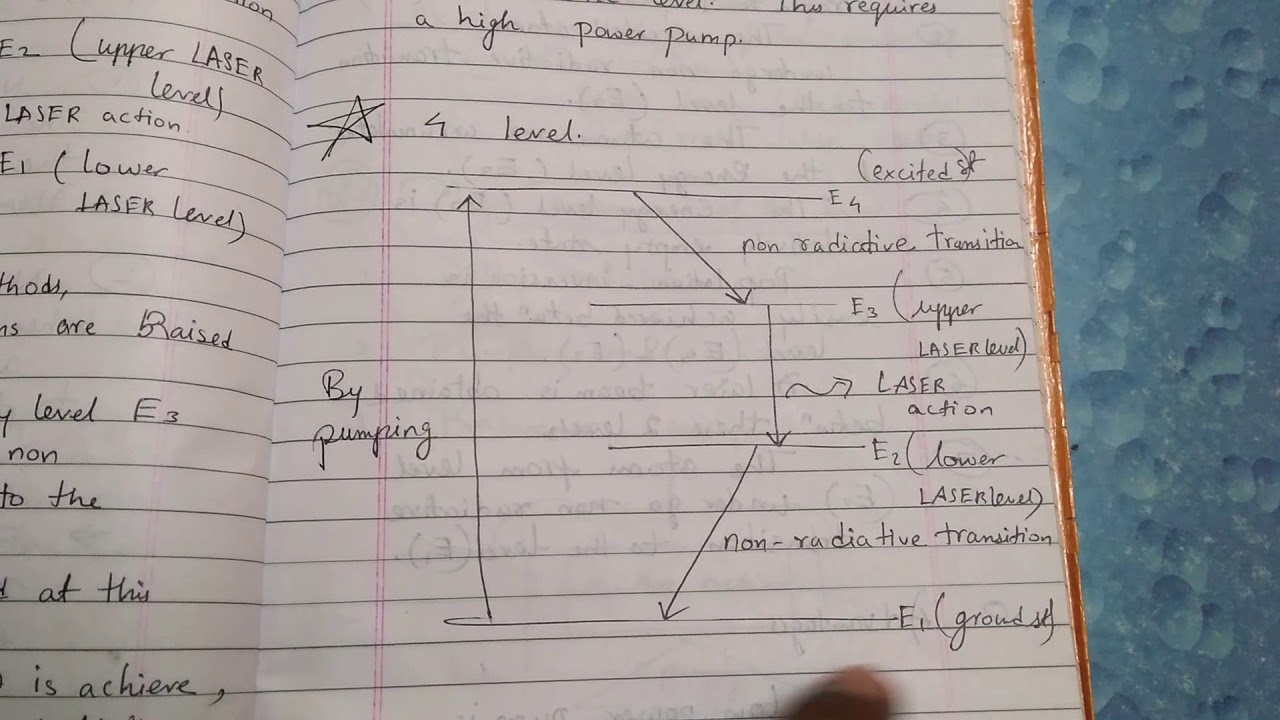 E2 (upper LASER
level)
LASER action.
E1 (lower
LASER level)
thods,
ns are Raised
level E3
non
to the
at this
is achieve,
level. This requires
a high power pump.
4 level.
(excited st
E4
non radiative transition
E3 (upper
LASER level)
By
pumping
LASER
action
E2 (lower
LASER level)
non-radiative transition
E1 (ground st)